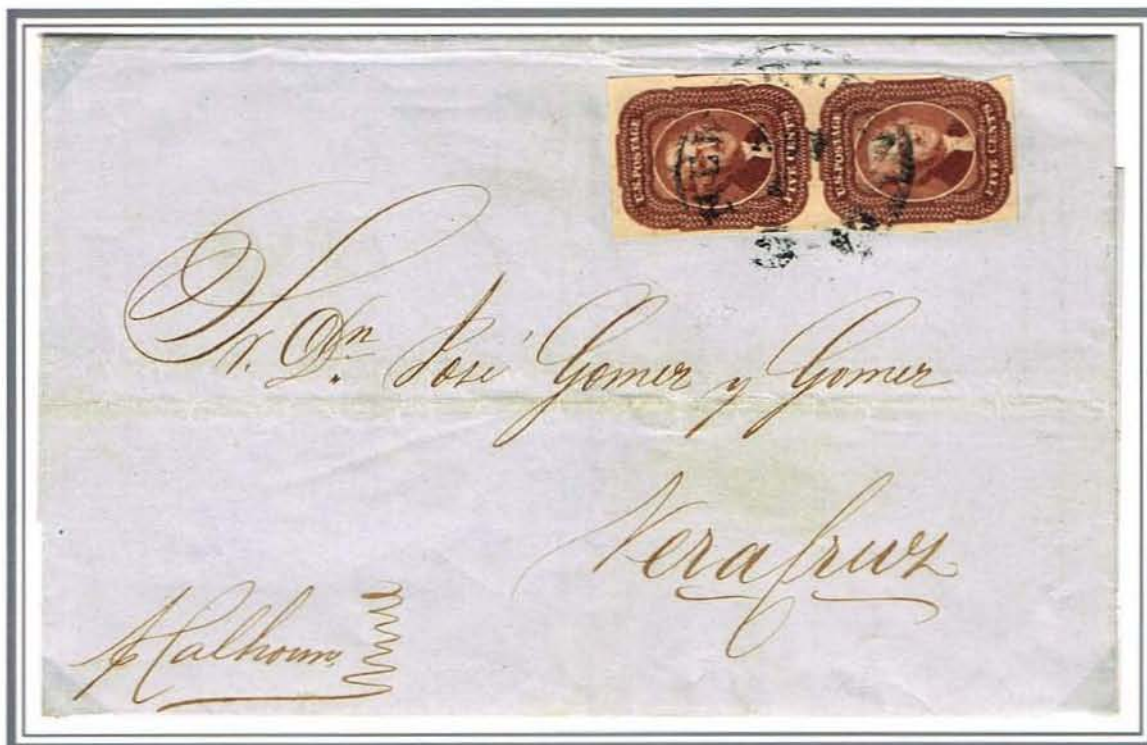 U.S. POSTAGE
FIVE CENTS
U.S. POSTAGE
FIVE CENTS
Sr. Dn. José Gomez y Gomez
Vera Cruz
Calhoun